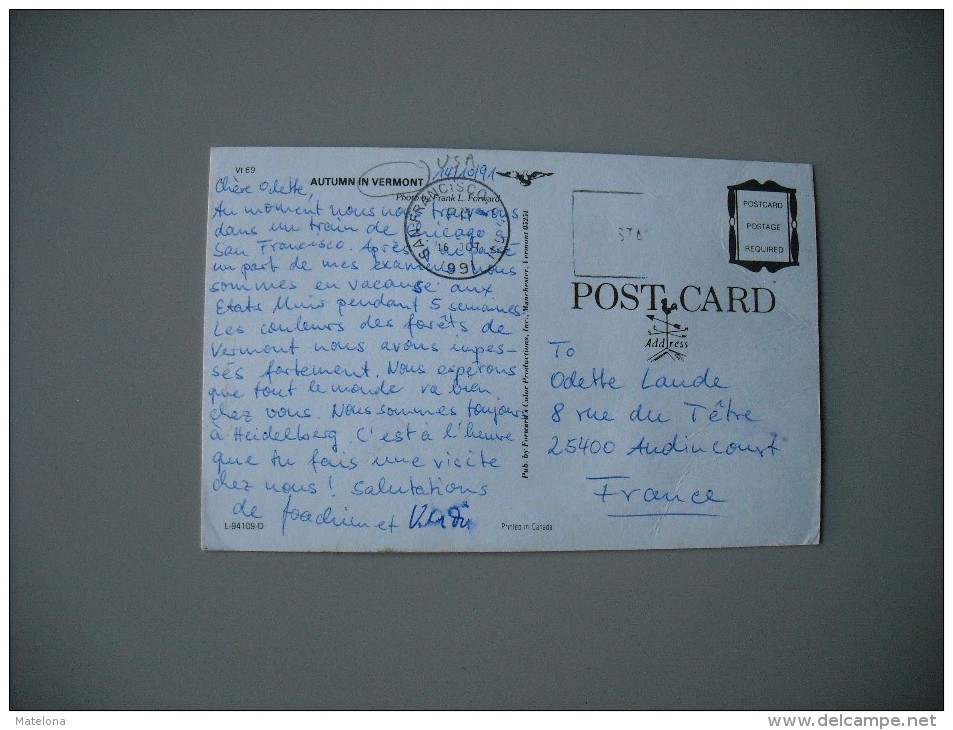 VI 69
AUTUMN IN VERMONT
Photo by Frank L. Forward
USA
14/10/91
Chère Odette,
Au moment nous nous trouvons
dans un train de Chicago à
San Francisco. Après
un part de mes examens nous
sommes en vacanse aux
Etats Unis pendant 5 semaines.
Les couleurs des forêts de
Vermont nous avons impes-
sés fortement. Nous espérons
que tout le monde va bien
chez vous. Nous sommes toujours
à Heidelberg. C'est à l'heure
que tu fais une visite
chez nous! Salutations
de Joachim et
L-94109-D
SAN FRANCISCO
16 OCT
1991
Pub. by Forward's Color Productions, Inc., Manchester, Vermont 05254
Printed in Canada
POSTCARD
POSTAGE
REQUIRED
STA
POST CARD
Address
To
Odette Laude
8 rue du Têtre
25400 Audincourt
France
Matelona
www.delcampe.net